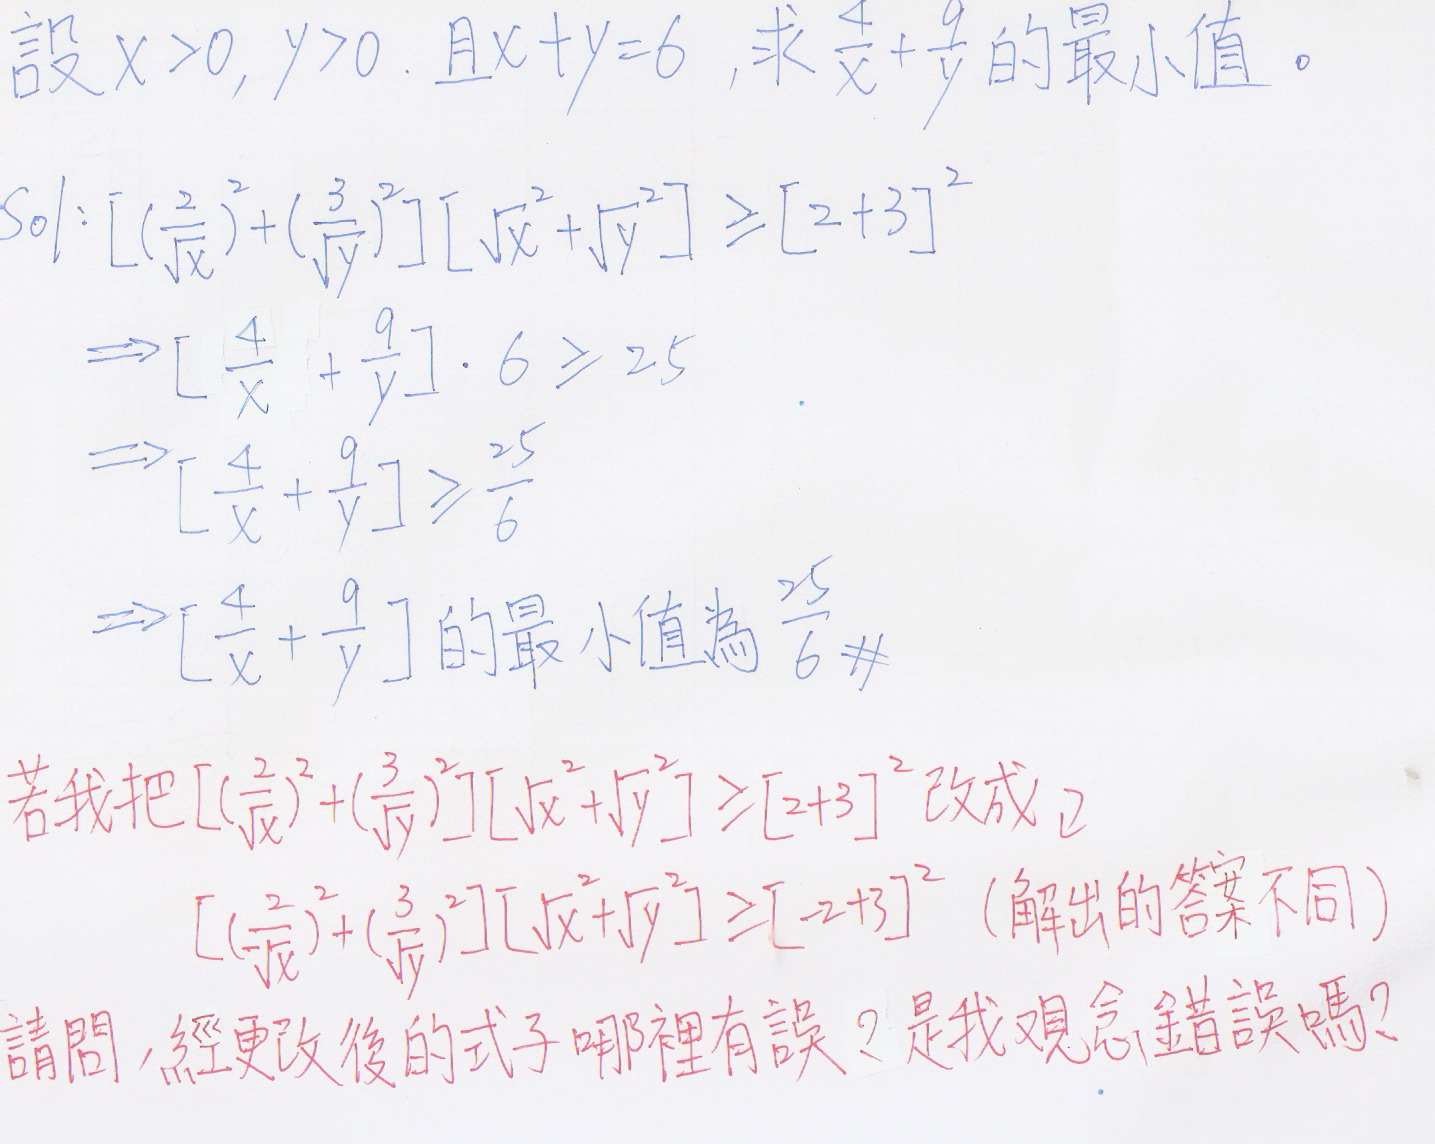 設 x>0, y>0. 且x+y=6 ,求 4/x + 9/y 的最小值。
Sol: [(2/√x)²+(3/√y)²][√x²+√y²] ≥ [2+3]²
⇒ [4/x + 9/y]·6 ≥ 25
⇒ [4/x + 9/y] ≥ 25/6
⇒ [4/x + 9/y] 的最小值為 25/6 #
若我把 [(2/√x)²+(3/√y)²][√x²+√y²] ≥ [2+3]² 改成
[(2/-√x)²+(3/√y)²][√x²+√y²] ≥ [-2+3]² (解出的答案不同)
請問,經更改後的式子哪裡有誤?是我觀念錯誤嗎?